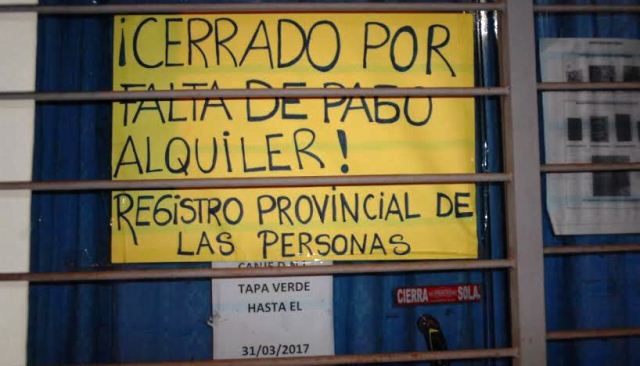 ¡CERRADO POR
FALTA DE PAGO
ALQUILER!
REGISTRO PROVINCIAL DE
LAS PERSONAS
TAPA VERDE
HASTA EL
31/03/2017
CIERRA
SOLA.